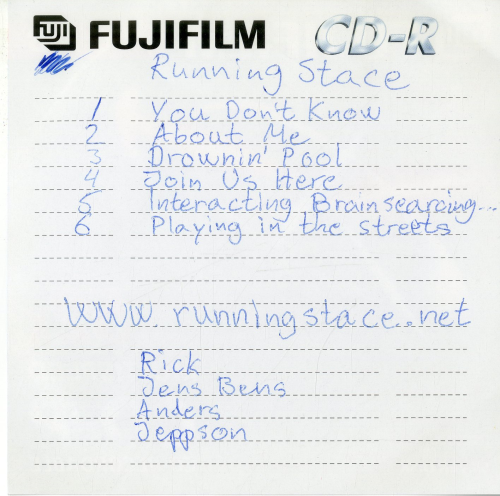 FUJI FUJIFILM CD-R
Running Stace
1 You Don't Know
2 About Me
3 Drownin' Pool
4 Join Us Here
5 Interacting Brainsearcing...
6 Playing in the streets
www.runningstace..net
Rick
Jens Bens
Anders
Jeppson